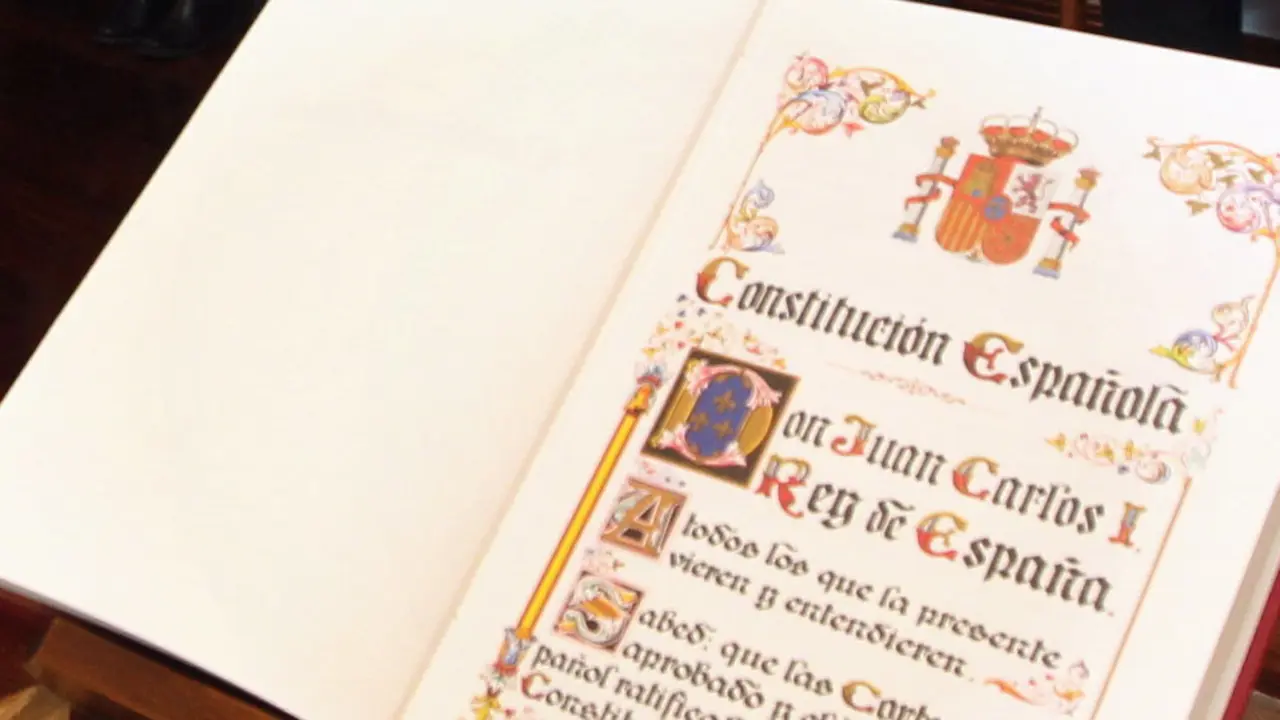 Constitución Española
Don Juan Carlos I.
Rey de España.
A todos los que la presente
vieren y entendieren.
Sabed: que las
aprobado y
pañol ratifica